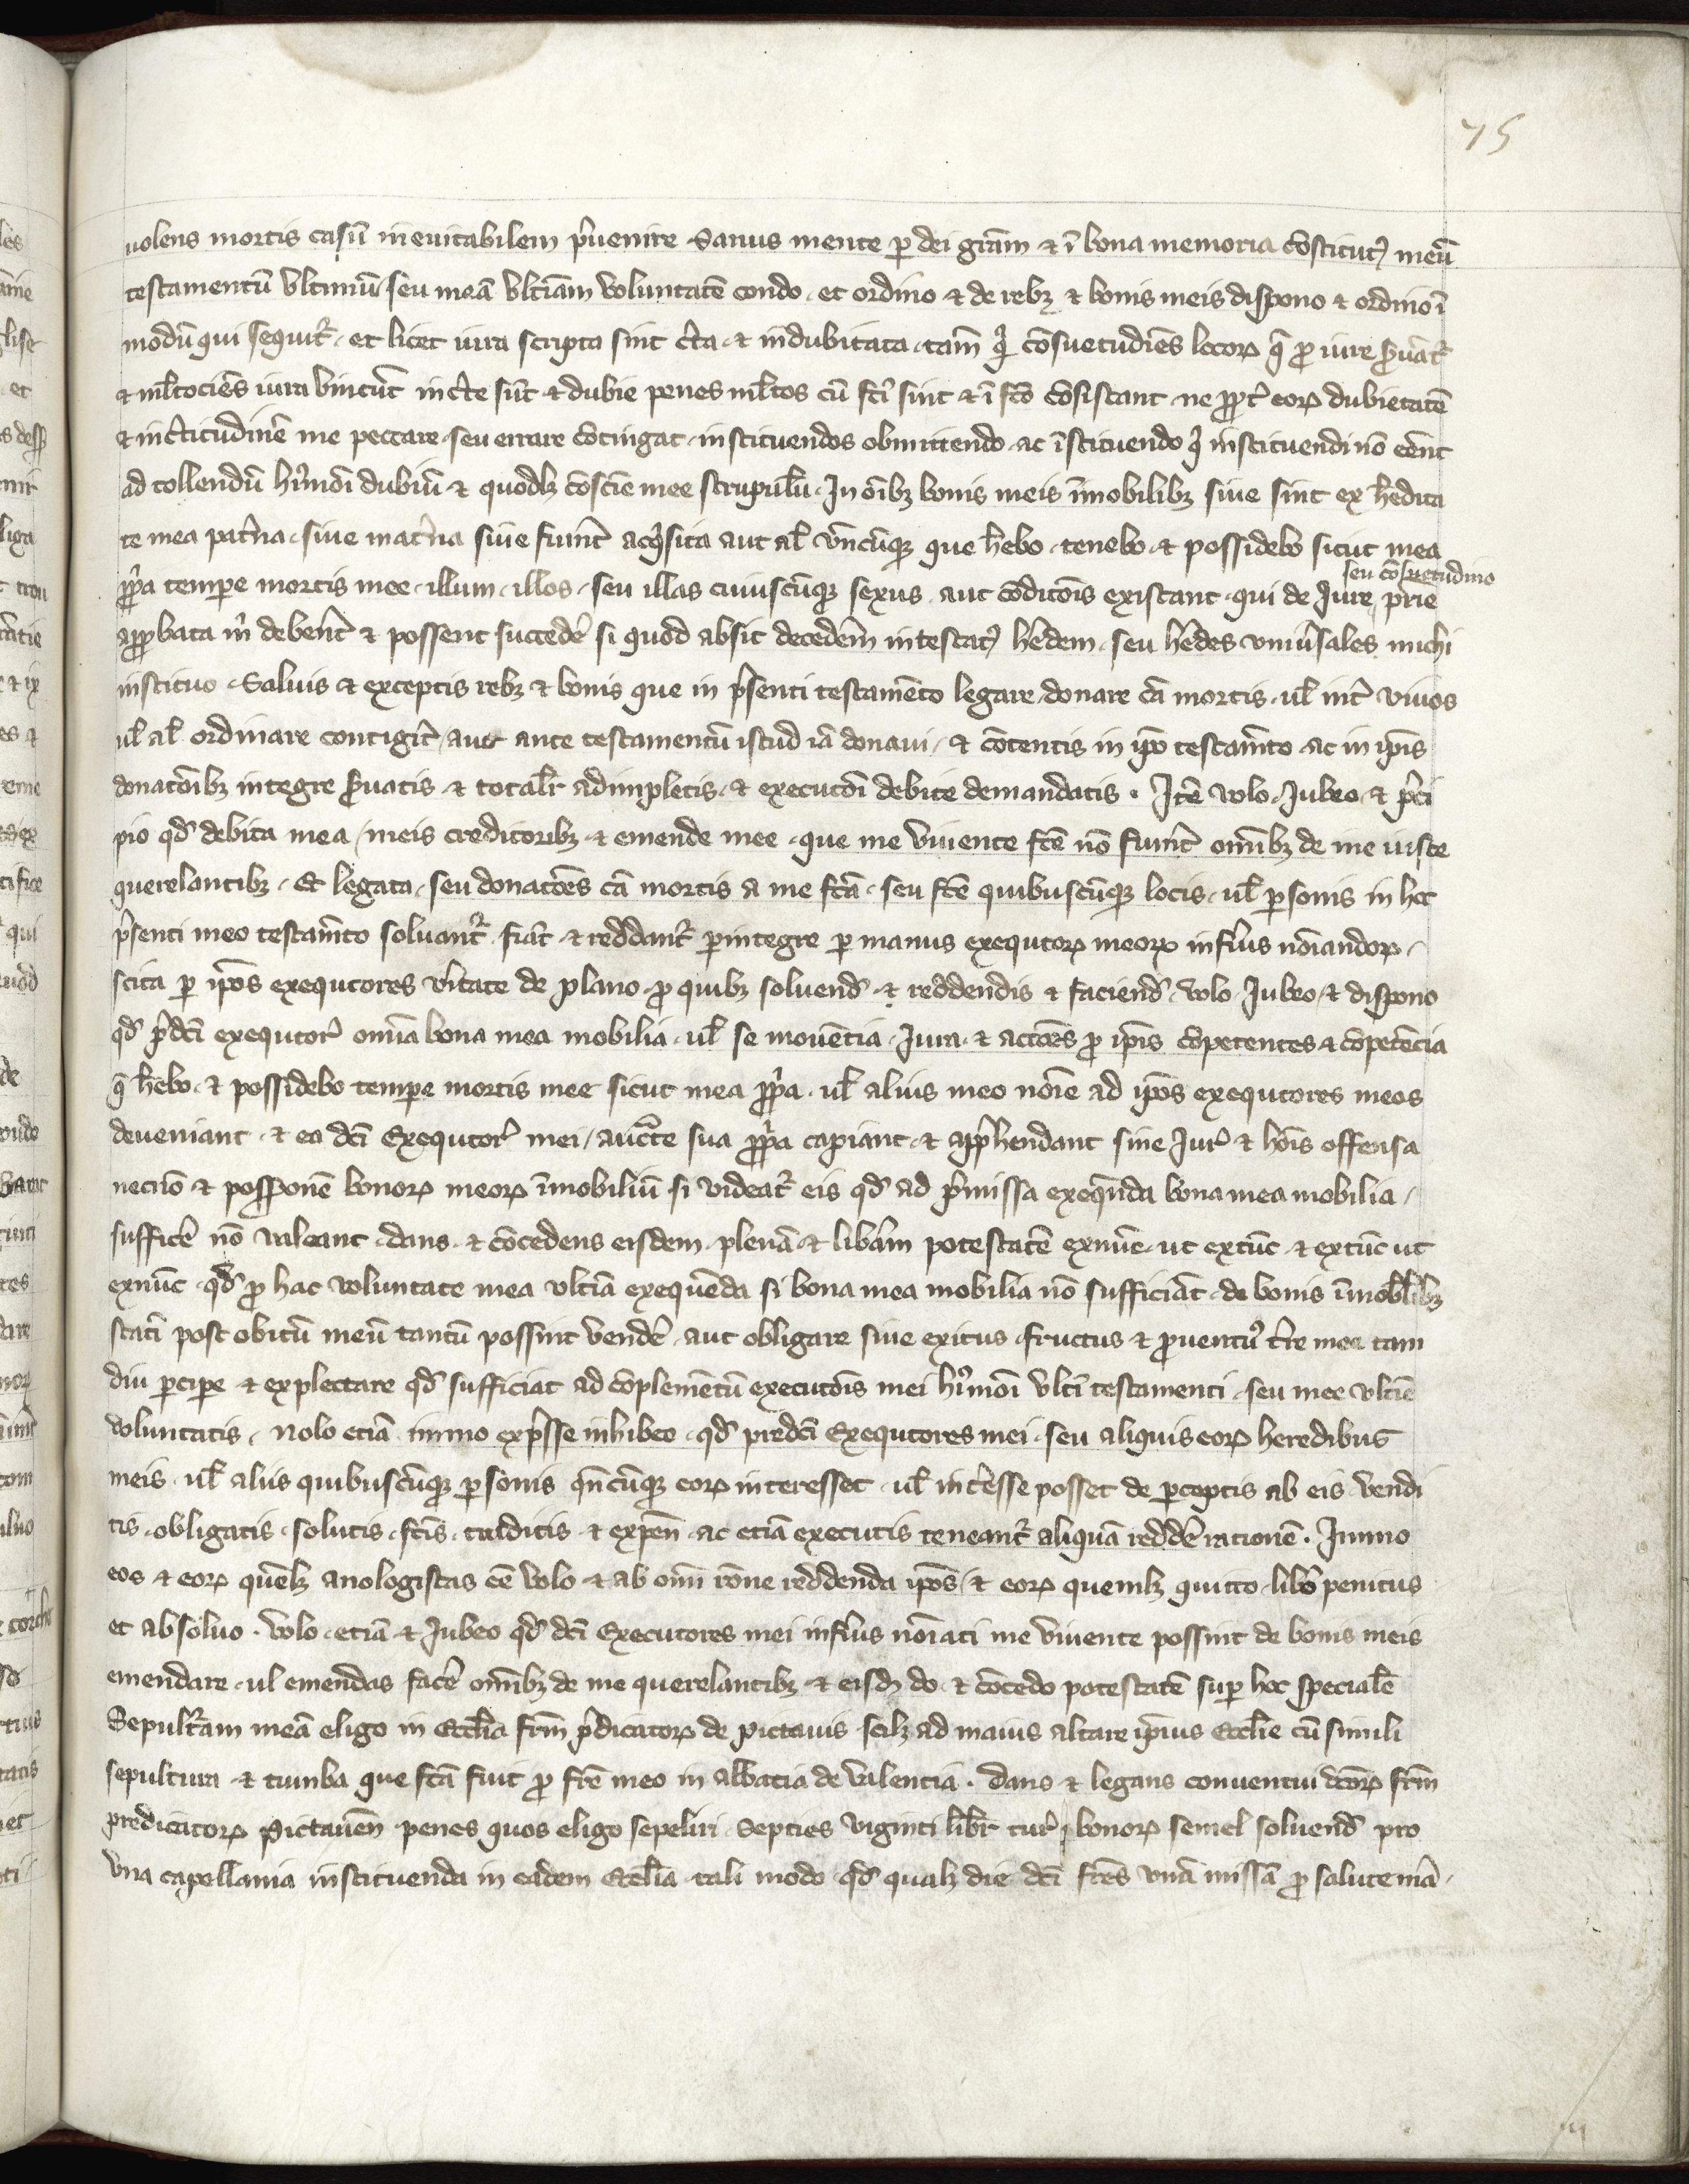 75
uolens mortis casū ineuitabilem p̄uenire Sanus mente ꝑ dei gr̄am ⁊ ī bona memoria cōstitutꝯ meū
testamentū vltimū seu meā vltīam voluntatē condo et ordino ⁊ de rebꝫ ⁊ bonis meis dispono ⁊ ordino ī
modū qui sequit᷑ et licet iura scripta sint c̄ta ⁊ indubitata tam̄ qꝛ cōsuetudiēs locoꝝ q̄ pro iure ẜuāt᷑
⁊ ml̄tociēs iura vincūt inc̄te sūt ⁊ dubie penes ml̄tos cū fc̄i sint ⁊ ī fc̄o cōsistant ne ꝓpt̄ eoꝝ dubietatē
⁊ inc̄titudinē me peccare seu errare cōtingat instituendos obmittendo ac īstituendo qi instituendi nō eēnt
ad tollendū hi᷒mōi dubiū ⁊ quodlꝫ cōscīe mee scrupulū In oībꝫ bonis meis īmobilibꝫ siue sint ex h̄edita
te mea pat̄na siue mat̄na siue fuīnt acq̄sita aut al̄ vn̄cūqꝫ que h̄ebo tenebo ⁊ possidebo sicut mea
seu cōsuetudine
ꝓp̄a tempe mortis mee illum illos seu illas cuiuscūqꝫ sexus aut cōdicōis existant qui de Iure pr̄ie
apꝓbata m̄ debēnt ⁊ possent succedē si quod absit decedēm intestatꝯ h̄edem seu h̄edes vniūsales michi
instituo Saluis ⁊ exceptis rebꝫ ⁊ bonis que in p̄senti testamēto legare donare cā mortis ul̄ int̄ viuos
ul̄ al̄ ordinare contigit̄ aut ante testamentū istud iā donaui ⁊ cōtentis in ip̄o testamīto ac in ip̄is
donatōibꝫ integre ẜuatis ⁊ totalr̄ adimpletis ⁊ executōi debite demandatis . Itē volo Iubeo ⁊ p̄ci
pio qd̄ debita mea meis creditoribꝫ ⁊ emende mee que me viuente fc̄e nō fuīnt om̄ibꝫ de me iuste
querelantibꝫ Et legata seu donatōes cā mortis a me fc̄a seu fc̄e quibuscūqꝫ locis ul̄ ꝑsonis in hoc
p̄senti meo testam̄to soluant᷑ fiāt ⁊ reddant᷑ ꝑintegre ꝑ manus exequtoꝝ meoꝝ infr̄ius nōiandoꝝ
scita ꝑ ip̄os exequtores v̄itate de plano pro quibꝫ soluend̄ ⁊ reddendis ⁊ faciend̄ volo Iubeo ⁊ dispono
qd̄ p̄dc̄i exequtor̄ om̄ia bona mea mobilia ul̄ se mouētia Iura ⁊ actōes pro ip̄is cōpetentes ⁊ cōpetēcia
q̄ h̄ebo ⁊ possidebo tempe mortis mee sicut mea ꝓp̄a ul̄ alius meo nōie ad ip̄os exequtores meos
deueniant ⁊ ea dc̄i Exequtor̄ mei auctc̄te sua ꝓp̄a capiant ⁊ app̄hendant sine Iur̄ ⁊ hōis offensa
necnō ⁊ possessionē bonoꝝ meoꝝ īmobiliū si videat᷑ eis qd̄ ad p̄missa exequēda bona mea mobilia
sufficē nō valeant dans ⁊ cōcedens eisdem plenā ⁊ libām potestatē exnūc ut extūc ⁊ extūc ut
exnūc qd̄ pro hac voluntate mea vltīa exequēda si bona mea mobilia nō sufficiāt de bonis īmobl̄ibꝫ
stati post obitū meū tantū possint vendē aut obligare siue exitus fructus ⁊ prouentꝯ t̄re mee tam
diu ꝑcipe ⁊ explectare qd̄ sufficiat ad cōplemētū executōis mei hi᷒mōi vltī testamenti seu mee vltīe
voluntatis nolo etiā immo exp̄sse inhibeo qd̄ predc̄i Exequtores mei seu aliquis eoꝝ heredibus
meis ul̄ aliis quibuscūqꝫ ꝑsonis qn̄cūqꝫ eoꝝ interesset ul̄ int̄esse posset de ꝑceptis ab eis vendi
tis obligatis solutis fc̄is traditis ⁊ expen̄ ac etiā executis teneant᷑ aliquā reddē rationē . Immo
eos ⁊ eoꝝ quēlꝫ anologistas eē volo ⁊ ab om̄i rōne reddenda ip̄os ⁊ eoꝝ quemlꝫ quitto libō penitus
et absoluo . volo etiā ⁊ Iubeo qd̄ dc̄i Executores mei infr̄ius nōiati me viuente possint de bonis meis
emendare ul emendas facē om̄ibꝫ de me querelantibꝫ ⁊ eisdꝫ do ⁊ cōcedo potestatē suꝑ hoc specialē
Sepultr̄am meā eligo in Eccl̄ia fr̄m p̄dicatoꝝ de pictauis scilꝫ ad maius altare ip̄ius Eccl̄ie cū simili
sepultura ⁊ tumba que fc̄a fuit pro fr̄e meo in abbatia de valentia . dans ⁊ legans conuentui dc̄oꝝ fr̄m
predicatoꝝ pictauen̄ penes quos eligo sepeliri Septies viginti libr̄ tur̄ bonoꝝ semel soluend̄ pro
vna capellania instituenda in eadem Eccl̄ia tali modo qd̄ qualꝫ die dc̄i fr̄es vnā missā pro salute mā